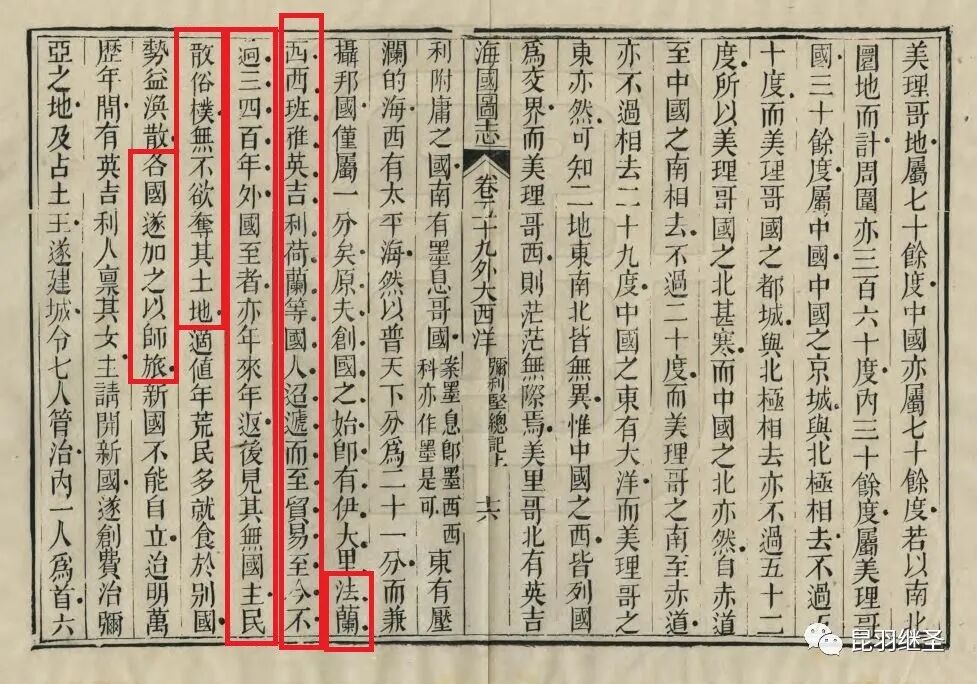 美理哥地屬七十餘度中國亦屬七十餘度若以南北
圍地而計周圍亦三百六十度內三十餘度屬美理哥
國三十餘度屬中國中國之京城與北極相去不過五
十度而美理哥國之都城與北極相去亦不過五十二
度所以美理哥國之北甚寒而中國之北亦然自赤道
至中國之南相去不過二十度而美理哥之南至赤道
亦不過相去二十九度中國之東有大洋而美理哥之
東亦然可知二地東南北皆無異惟中國之西皆列國
爲交界而美理哥西則茫茫無際焉美里哥北有英吉
海國圖志 卷五十九外大西洋 彌利堅總記上 十六
利附庸之國南有墨息哥國 案墨息卽墨西西科亦作墨是可 東有壓
瀾的海西有太平海然以普天下分爲二十一分而兼
攝邦國僅屬一分矣原夫創國之始卽有伊大里法蘭
西西班雅英吉利荷蘭等國人迢遞而至貿易至今不
過三四百年外國至者亦年來年返後見其無國主民
散俗樸無不欲奪其土地適值年荒民多就食於別國
勢益渙散各國遂加之以師旅新國不能自立治明萬
歷年間有英吉利人禀其女主請開新國遂創費治彌
亞之地及占土王遂建城分七人管治內一人爲首六
昆羽继圣